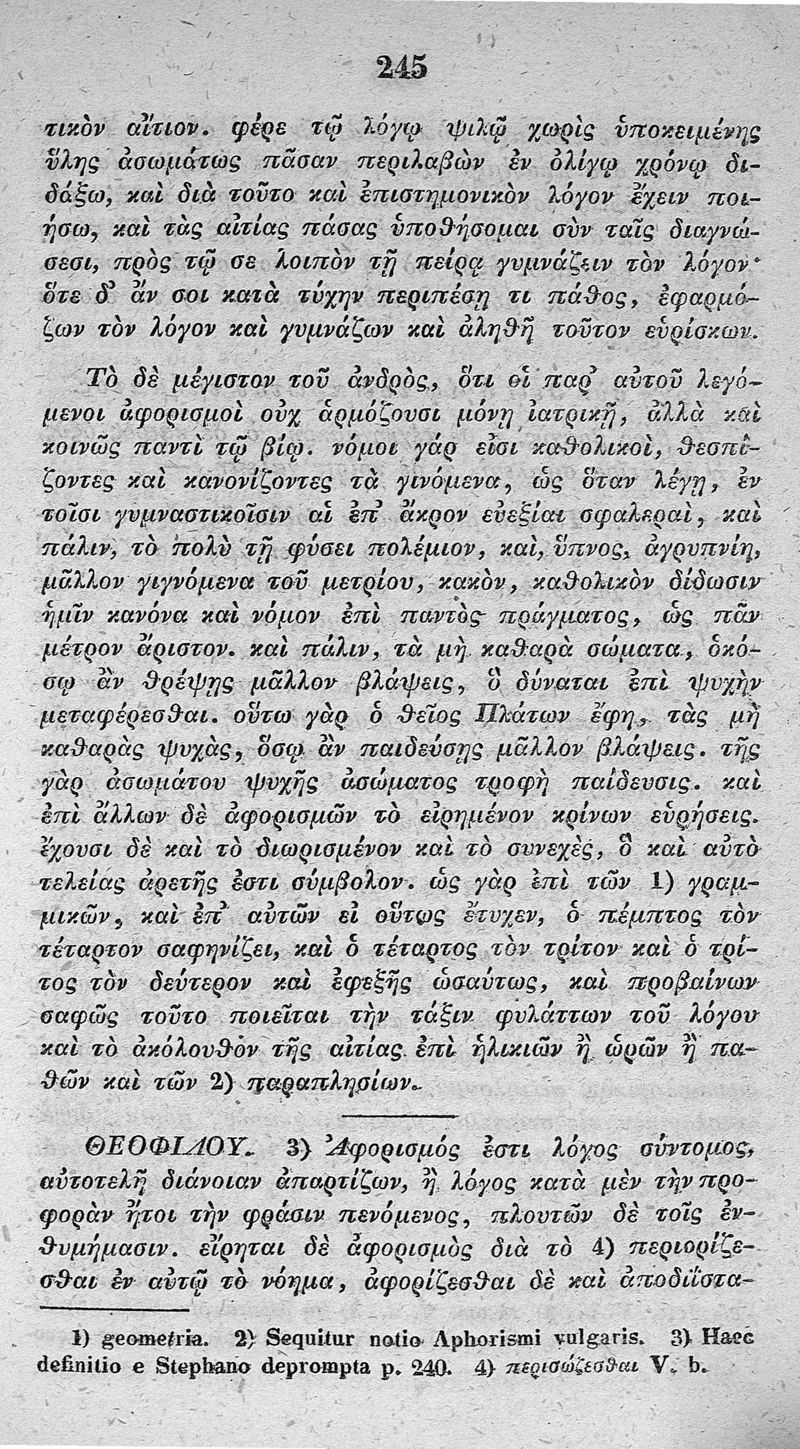 245
τικὸν αἴτιον. φέρε τῷ λόγῳ ψιλῷ χωρὶς ὑποκειμένης
ὕλης ἀσωμάτως πᾶσαν περιλαβὼν ἐν ὀλίγῳ χρόνῳ δι-
δάξω, καὶ διὰ τοῦτο καὶ ἐπιστημονικὸν λόγον ἔχειν ποι-
ήσω, καὶ τὰς αἰτίας πάσας ὑποθήσομαι σὺν ταῖς διαγνώ-
σεσι, πρὸς τῷ σε λοιπὸν τῇ πείρᾳ γυμνάζειν τὸν λόγον·
ὅτε δ’ ἄν σοι κατὰ τύχην περιπέσῃ τι πάθος, ἐφαρμό-
ζων τὸν λόγον καὶ γυμνάζων καὶ ἀληθῆ τοῦτον εὑρίσκων.
Τὸ δὲ μέγιστον τοῦ ἀνδρὸς, ὅτι οἱ παρ’ αὐτοῦ λεγό-
μενοι ἀφορισμοὶ οὐχ ἁρμόζουσι μόνῃ ἰατρικῇ, ἀλλὰ καὶ
κοινῶς παντὶ τῷ βίῳ. νόμοι γάρ εἰσι καθολικοὶ, θεσπί-
ζοντες καὶ κανονίζοντες τὰ γινόμενα, ὡς ὅταν λέγῃ, ἐν
τοῖσι γυμναστικοῖσιν αἱ ἐπ’ ἄκρον εὐεξίαι σφαλεραὶ, καὶ
πάλιν, τὸ πολὺ τῇ φύσει πολέμιον, καὶ, ὕπνος, ἀγρυπνίη,
μᾶλλον γιγνόμενα τοῦ μετρίου, κακὸν, καθολικὸν δίδωσιν
ἡμῖν κανόνα καὶ νόμον ἐπὶ παντὸς πράγματος, ὡς πᾶν
μέτρον ἄριστον. καὶ πάλιν, τὰ μὴ καθαρὰ σώματα, ὁκό-
σῳ ἂν θρέψῃς μᾶλλον βλάψεις, ὃ δύναται ἐπὶ ψυχὴν
μεταφέρεσθαι. οὕτω γὰρ ὁ θεῖος Πλάτων ἔφη, τὰς μὴ
καθαρὰς ψυχὰς, ὅσῳ ἂν παιδεύσῃς μᾶλλον βλάψεις. τῆς
γὰρ ἀσωμάτου ψυχῆς ἀσώματος τροφὴ παίδευσις. καὶ
ἐπὶ ἄλλων δὲ ἀφορισμῶν τὸ εἰρημένον κρίνων εὑρήσεις.
ἔχουσι δὲ καὶ τὸ διωρισμένον καὶ τὸ συνεχὲς, ὃ καὶ αὐτὸ
τελείας ἀρετῆς ἐστι σύμβολον. ὡς γὰρ ἐπὶ τῶν 1) γραμ-
μικῶν, καὶ ἐπ’ αὐτῶν εἰ οὕτως ἔτυχεν, ὁ πέμπτος τὸν
τέταρτον σαφηνίζει, καὶ ὁ τέταρτος τὸν τρίτον καὶ ὁ τρί-
τος τὸν δεύτερον καὶ ἐφεξῆς ὡσαύτως, καὶ προβαίνων
σαφῶς τοῦτο ποιεῖται τὴν τάξιν φυλάττων τοῦ λόγου
καὶ τὸ ἀκόλουθὸν τῆς αἰτίας ἐπὶ ἡλικιῶν ἢ ὡρῶν ἢ πα-
θῶν καὶ τῶν 2) παραπλησίων.
ΘΕΟΦΙΛΟΥ. 3) Ἀφορισμός ἐστι λόγος σύντομος,
αὐτοτελῆ διάνοιαν ἀπαρτίζων, ἢ λόγος κατὰ μὲν τὴν προ-
φορὰν ἤτοι τὴν φράσιν πενόμενος, πλουτῶν δὲ τοῖς ἐν-
θυμήμασιν. εἴρηται δὲ ἀφορισμὸς διὰ τὸ 4) περιορίζε-
σθαι ἐν αὐτῷ τὸ νόημα, ἀφορίζεσθαι δὲ καὶ ἀποδιΐστα-
1) geometria. 2) Sequitur notio Aphorismi vulgaris. 3) Haec
definitio e Stephano deprompta p. 240. 4) περισώζεσθαι V. b.